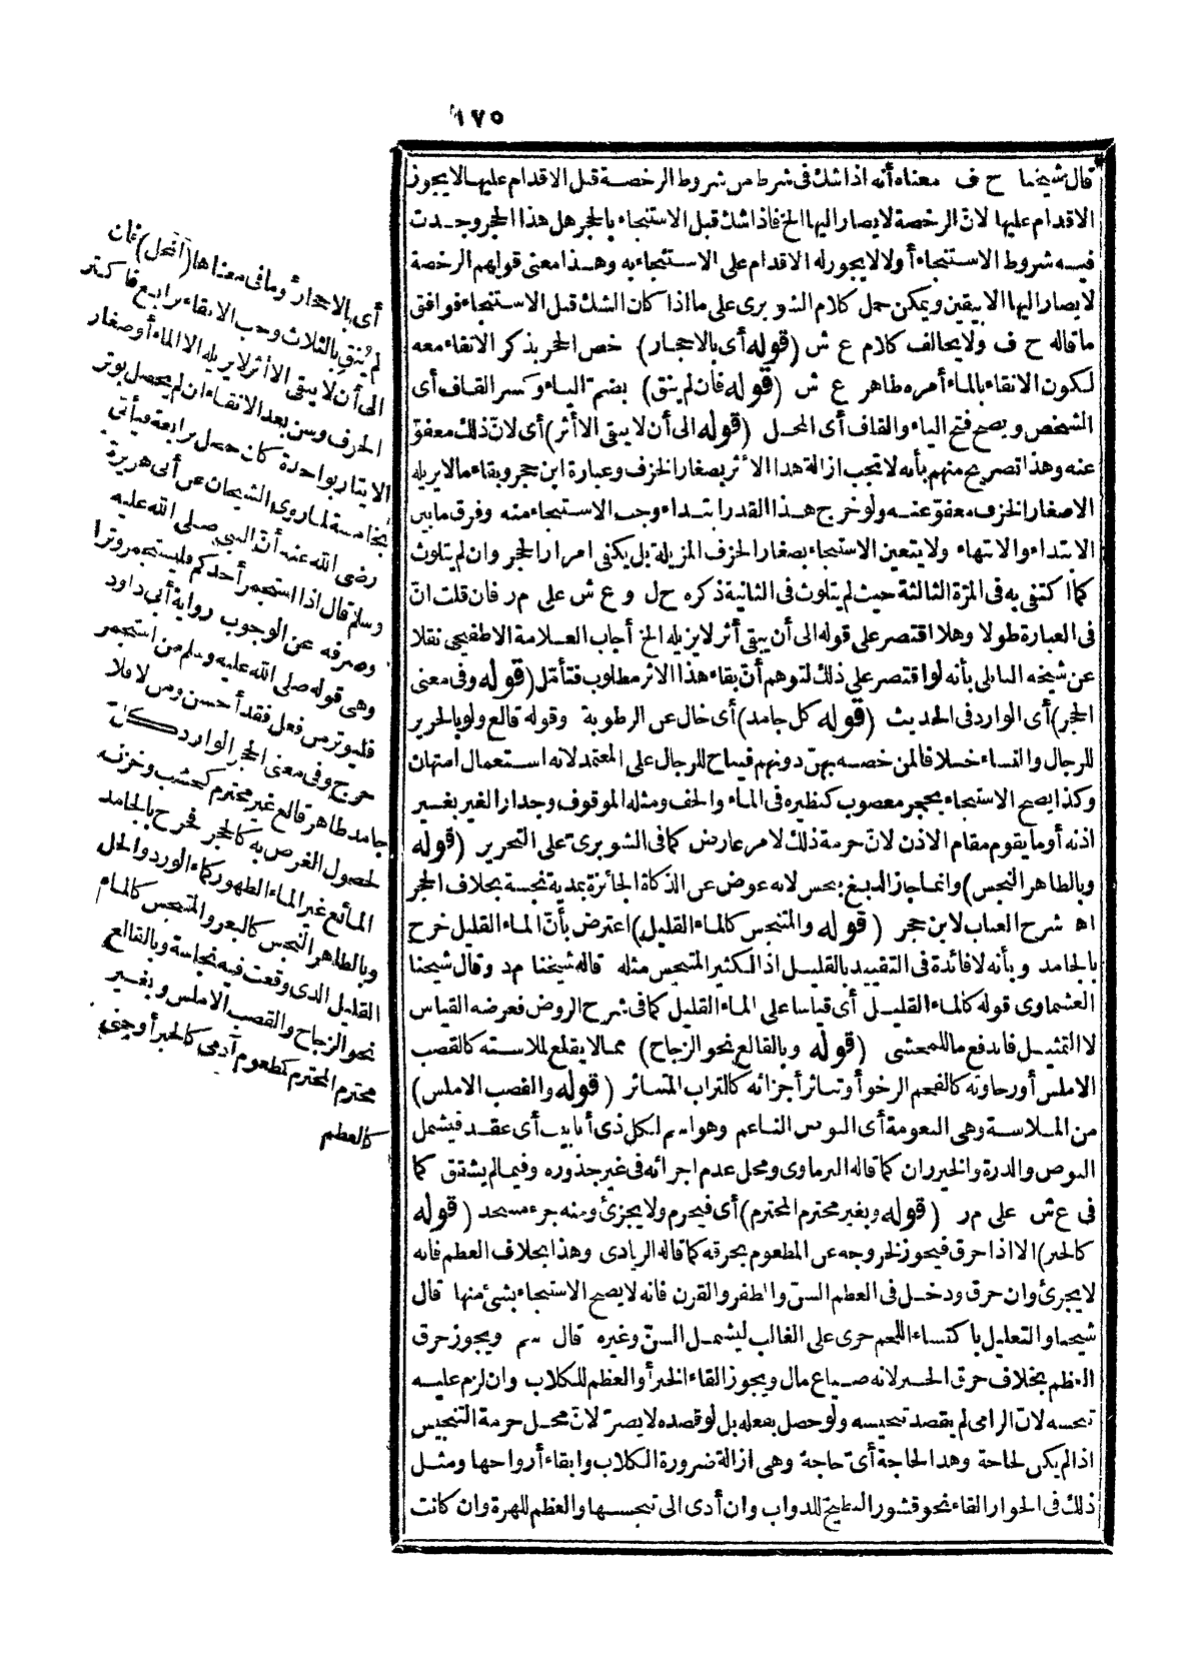 ١٧٥
قال شيخنا ح ف معناه أنه اذا شك فى شرط من شروط الرخصة قبل الاقدام عليها لا يجوز
الاقدام عليها لانّ الرخصة لا يصار اليها الخ فاذا شك قبل الاستنجاء بالحجر هل هذا الحجر وجدت
فيه شروط الاستنجاء أولا لا يجوز له الاقدام على الاستنجاء به وهذا معنى قولهم الرخصة
لا يصار اليها الا بيقين ويمكن حمل كلام الشوبرى على ما اذا كان الشك قبل الاستنجاء فوافق
ما قاله ح ف ولا يخالف كلام ع ش (قوله أى بالاحجار) خص الحجر بذكر الانقاء معه
لكون الانقاء بالماء أمره ظاهر ع ش (قوله فان لم ينق) بضم الياء وكسر القاف أى
الشخص ويصح فتح الياء والقاف أى المحل (قوله الى أن لا يبقى الا أثر) أى لانّ ذلك معفوّ
عنه وهذا تصريح منهم بأنه لا تجب ازالة هذا الاثر بصغار الخزف وعبارة ابن حجر وبقاء ما لا يزيله
الا صغار الخزف معفوّ عنه ولو خرج هذا القدر ابتداء وجب الاستنجاء منه وفرق ما بين
الابتداء والانتهاء ولا يتعين الاستنجاء بصغار الخزف المزيلة بل يكفى امرار الحجر وان لم يتلوث
كما اكتفى به فى المرّة الثالثة حيث لم يتلوث فى الثانية ذكره ح ل و ع ش على م ر فان قلت انّ
فى العبارة طولا وهلا اقتصر على قوله الى أن يبقى أثر لا يزيله الخ أجاب العلامة الاطفيحى نقلا
عن شيخه البابلى بأنه لو اقتصر على ذلك لتوهم أنّ بقاء هذا الاثر مطلوب فتأمّل (قوله وفى معنى
الحجر) أى الوارد فى الحديث (قوله كل جامد) أى خال عن الرطوبة وقوله قالع ولو بالحرير
للرجال والنساء خلافا لمن خصه بهنّ دونهم فيباح للرجال على المعتمد لانه استعمال امتهان
وكذا يصح الاستنجاء بحجر مغصوب كنظيره فى الماء والخف ومثله الموقوف وجدار الغير بغير
اذنه أو ما يقوم مقام الاذن لانّ حرمة ذلك لامر عارض كما فى الشوبرى على التحرير (قوله
وبالطاهر النجس) وانما جاز الدبغ بنجس لانه عوض عن الذكاة الجائزة بمدية نجسة بخلاف الحجر
اه شرح العباب لابن حجر (قوله والمتنجس كالماء القليل) اعترض بأنّ الماء القليل خرج
بالجامد وبأنه لا فائدة فى التقييد بالقليل اذ الكثير المتنجس مثله قاله شيخنا م د وقال شيخنا
العشماوى قوله كالماء القليل أى قياسا على الماء القليل كما فى شرح الروض فغرضه القياس
لا التمثيل فاندفع ما للمحشى (قوله وبالقالع نحو الزجاج) مما لا يقلع لملاسته كالقصب
الاملس أو رخاوته كالفحم الرخو أو تناثر أجزائه كالتراب المتناثر (قوله والقصب الاملس)
من الملاسة وهى النعومة أى البوص الناعم وهو اسم لكل ذى أنابيب أى عقد فيشمل
البوص والذرة والخيزران كما قاله البرماوى ومحل عدم اجزائه فى غير جذوره وفيما لم يشقق كما
فى ع ش على م ر (قوله وبغير محترم المحترم) أى فيحرم ولا يجزئ ومنه جزء مسجد (قوله
كالخبز) الا اذا حرق فيجوز لخروجه عن المطعوم بحرقه كما قاله الزيادى وهذا بخلاف العظم فانه
لا يجزئ وان حرق ودخل فى العظم السنّ والظفر والقرن فانه لا يصح الاستنجاء بشئ منها قال
شيخنا والتعليل باكتساء اللحم جرى على الغالب ليشمل السنّ وغيره قال سم ويجوز حرق
العظم بخلاف حرق الخبز لانه ضياع مال ويجوز القاء الخبز أو العظم للكلاب وان لزم عليه
تنجسه لانّ الرامى لم يقصد تنجيسه ولو حصل بفعله بل لو قصده لا يضرّ لانّ محل حرمة التنجيس
اذا لم يكن لحاجة وهذا لحاجة أىّ حاجة وهى ازالة ضرورة الكلاب وابقاء أرواحها ومثل
ذلك فى الجواز القاء نحو قشور البطيخ للدواب وان أدى الى تنجسها والعظم للهرة وان كانت
أى بالاحجار أو ما فى معناها (المحل) فان
لم يُنق بالثلاث وجب الانقاء برابع فاكثر
الى أن لا يبقى الا أثر لا يزيله الا الماء أو صغار
الخزف وسن بعد الانقاء ان لم يحصل بوتر
الايتار بواحدة كأن حصل برابعة فيأتى
بخامسة لما روى الشيخان عن أبى هريرة
رضى الله عنه أنّ النبى صلى الله عليه
وسلم قال اذا استجمر أحدكم فليستجمر وترا
وصرفه عن الوجوب رواية أبى داود
وهى قوله صلى الله عليه وسلم من استجمر
فليوتر من فعل فقد أحسن ومن لا فلا
حرج وفى معنى الحجر الوارد كل
جامد طاهر قالع غير محترم كخشب وخزف
لحصول الغرض به كالحجر فخرج بالجامد
المائع غير الماء الطهور كماء الورد والخل
وبالطاهر النجس كالبعر والمتنجس كالماء
القليل الذى وقعت فيه نجاسة وبالقالع
نحو الزجاج والقصب الاملس وبغير
محترم المحترم كمطعوم آدمى كالخبز أو جنى
كالعظم